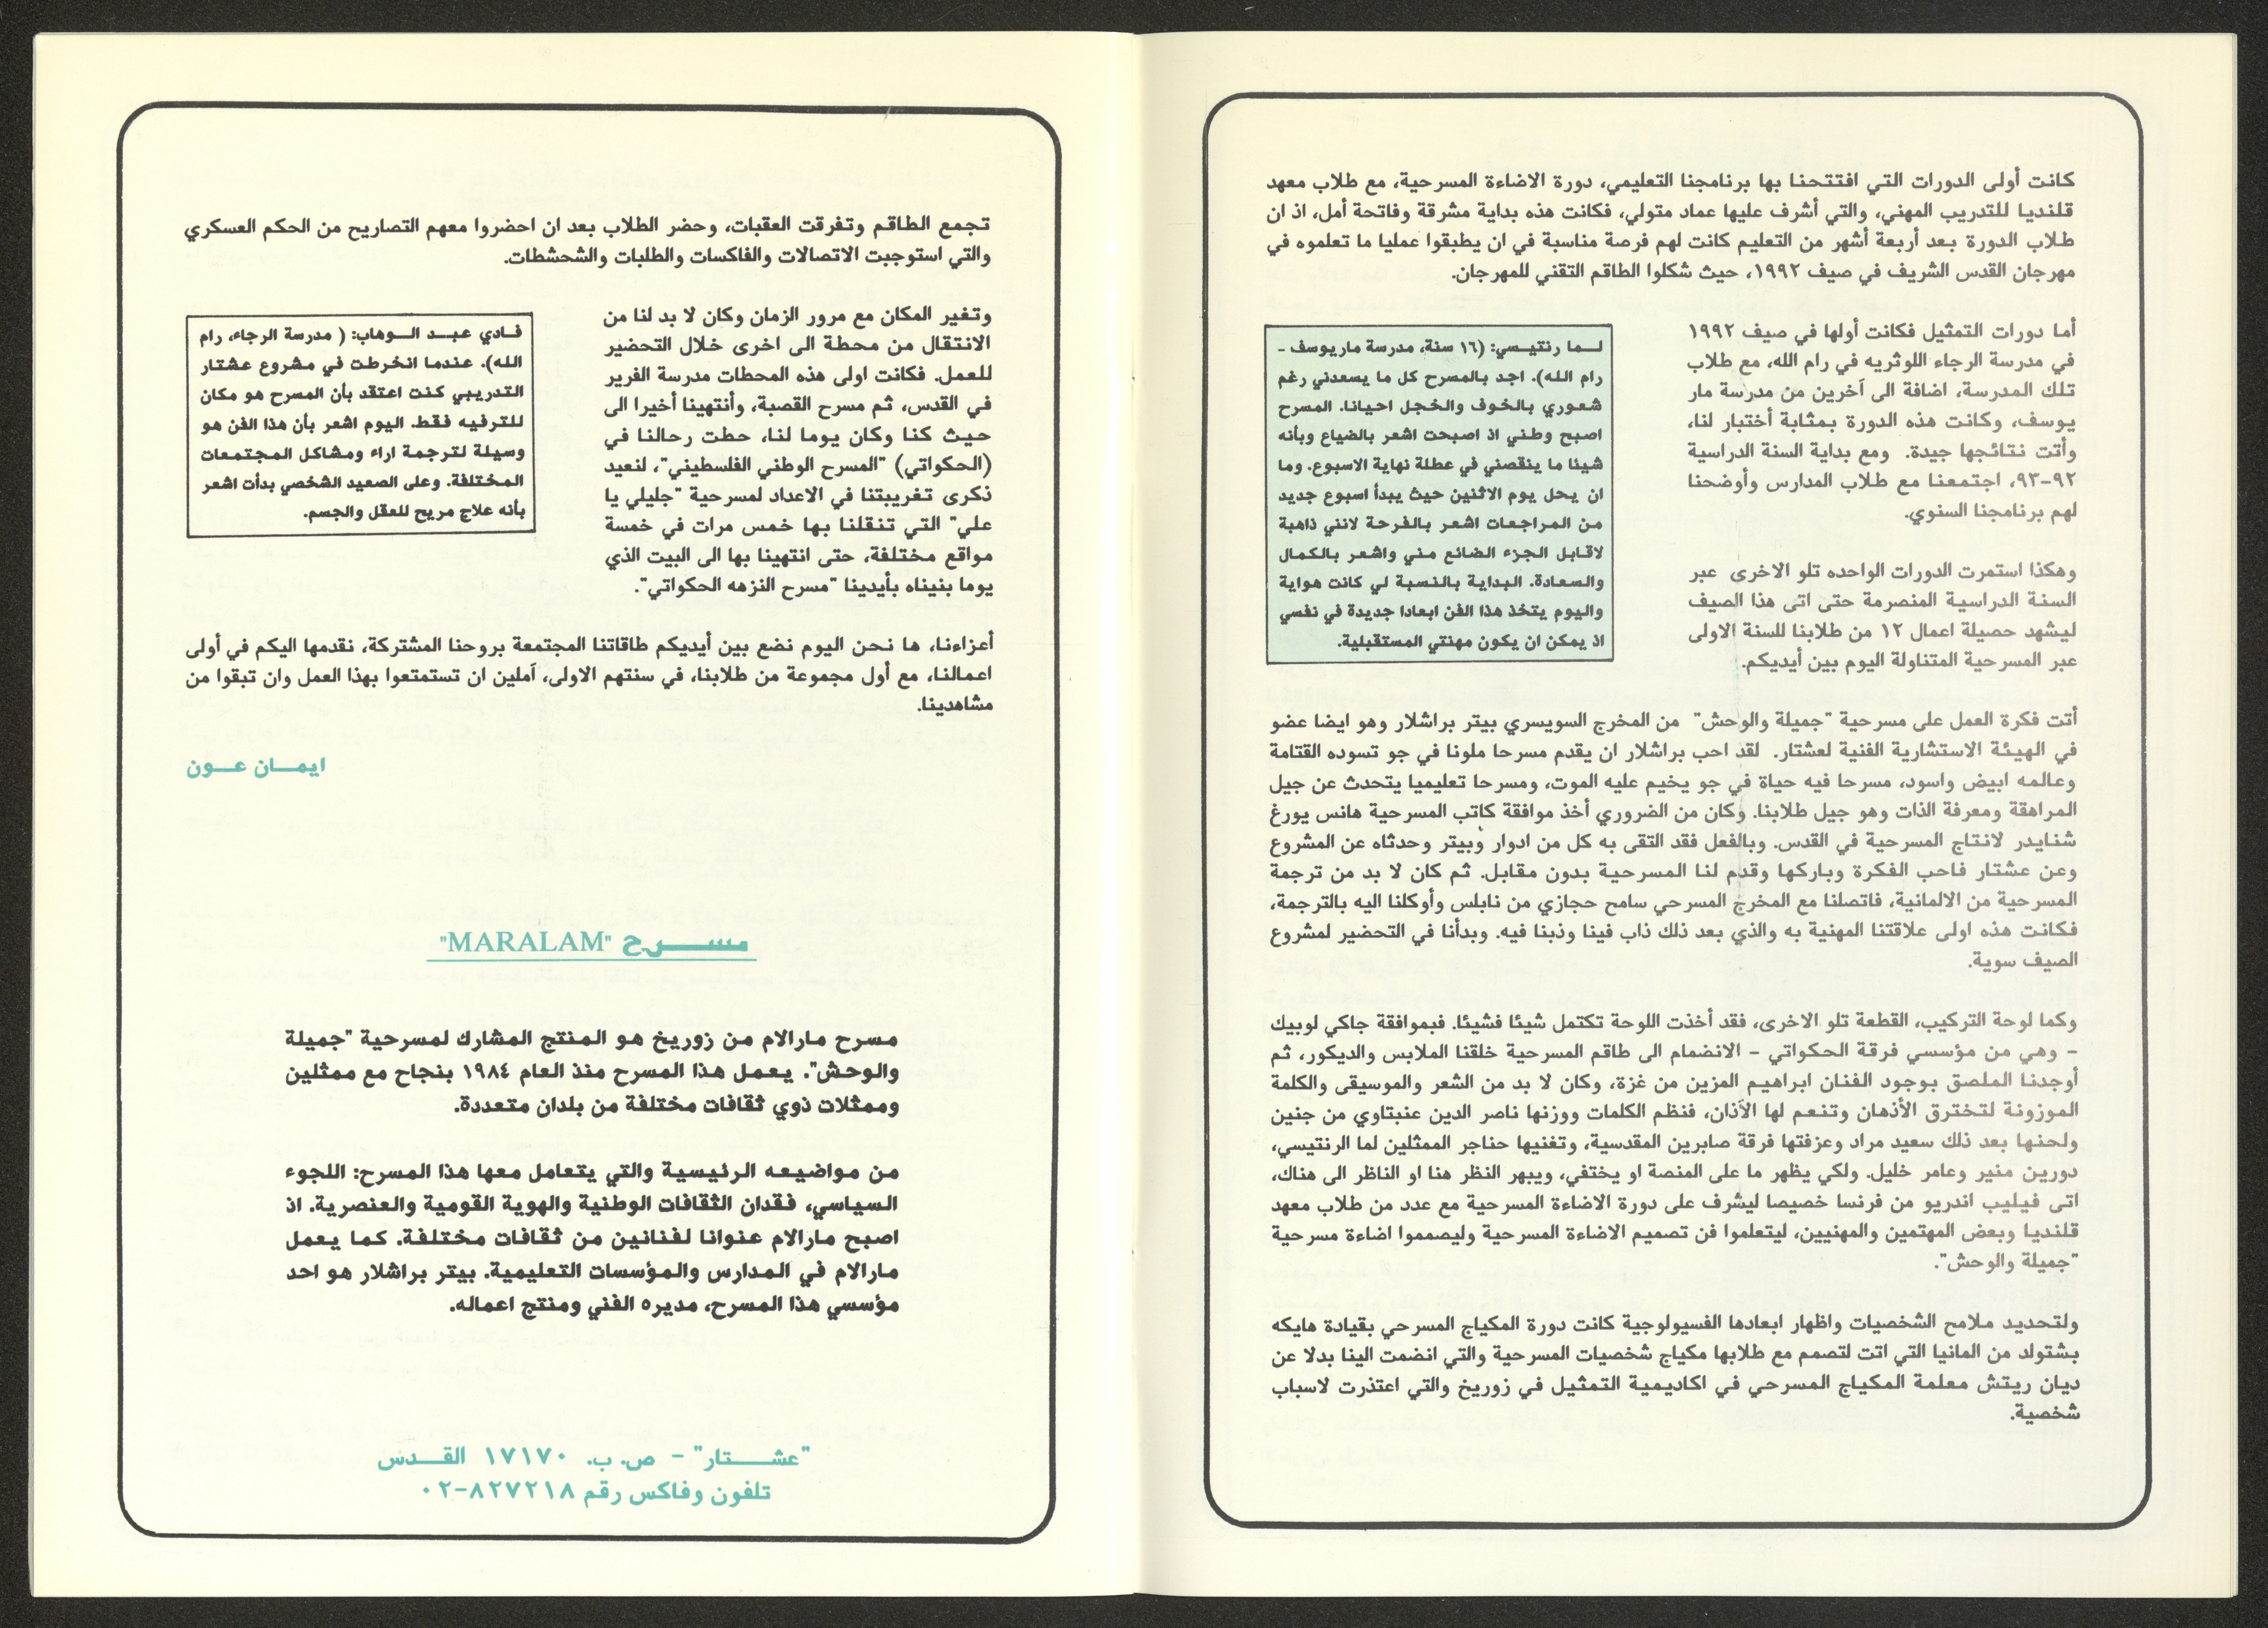 كانت أولى الدورات التي افتتحنا بها برنامجنا التعليمي، دورة الاضاءة المسرحية، مع طلاب معهد
قلنديا للتدريب المهني، والتي أشرف عليها عماد متولي، فكانت هذه بداية مشرقة وفاتحة أمل، اذ ان
طلاب الدورة بعد أربعة أشهر من التعليم كانت لهم فرصة مناسبة في ان يطبقوا عمليا ما تعلموه في
مهرجان القدس الشريف في صيف ١٩٩٢، حيث شكلوا الطاقم التقني للمهرجان.
أما دورات التمثيل فكانت أولها في صيف ١٩٩٢
في مدرسة الرجاء اللوثريه في رام الله، مع طلاب
تلك المدرسة، اضافة الى آخرين من مدرسة مار
يوسف، وكانت هذه الدورة بمثابة أختبار لنا،
وأتت نتائجها جيدة. ومع بداية السنة الدراسية
٩٢-٩٣، اجتمعنا مع طلاب المدارس وأوضحنا
لهم برنامجنا السنوي.
وهكذا استمرت الدورات الواحده تلو الاخرى عبر
السنة الدراسية المنصرمة حتى اتى هذا الصيف
ليشهد حصيلة اعمال ١٢ من طلابنا للسنة الاولى
عبر المسرحية المتناولة اليوم بين أيديكم.
لـما رنتيـسي: (١٦ سنة، مدرسة ماريوسف -
رام الله). اجد بالمسرح كل ما يسعدني رغم
شعوري بالخوف والخجل احيانا. المسرح
اصبح وطني اذ اصبحت اشعر بالضياع وبأنه
شيئا ما ينقصني في عطلة نهاية الاسبوع. وما
ان يحل يوم الاثنين حيث يبدأ اسبوع جديد
من المراجعات اشعر بالفرحة لانني ذاهبة
لاقابل الجزء الضائع مني واشعر بالكمال
والسعادة. البداية بالنسبة لي كانت هواية
واليوم يتخذ هذا الفن ابعادا جديدة في نفسي
اذ يمكن ان يكون مهنتي المستقبلية.
أتت فكرة العمل على مسرحية "جميلة والوحش" من المخرج السويسري بيتر براشلار وهو ايضا عضو
في الهيئة الاستشارية الفنية لعشتار. لقد احب براشلار ان يقدم مسرحا ملونا في جو تسوده القتامة
وعالمه ابيض واسود، مسرحا فيه حياة في جو يخيم عليه الموت، ومسرحا تعليميا يتحدث عن جيل
المراهقة ومعرفة الذات وهو جيل طلابنا. وكان من الضروري أخذ موافقة كاتب المسرحية هانس يورغ
شنايدر لانتاج المسرحية في القدس. وبالفعل فقد التقى به كل من ادوار وبيتر وحدثاه عن المشروع
وعن عشتار فاحب الفكرة وباركها وقدم لنا المسرحية بدون مقابل. ثم كان لا بد من ترجمة
المسرحية من الالمانية، فاتصلنا مع المخرج المسرحي سامح حجازي من نابلس وأوكلنا اليه بالترجمة،
فكانت هذه اولى علاقتنا المهنية به والذي بعد ذلك ذاب فينا وذبنا فيه. وبدأنا في التحضير لمشروع
الصيف سوية.
وكما لوحة التركيب، القطعة تلو الاخرى، فقد أخذت اللوحة تكتمل شيئا فشيئا. فبموافقة جاكي لوبيك
- وهي من مؤسسي فرقة الحكواتي - الانضمام الى طاقم المسرحية خلقنا الملابس والديكور، ثم
أوجدنا الملصق بوجود الفنان ابراهيم المزين من غزة، وكان لا بد من الشعر والموسيقى والكلمة
الموزونة لتخترق الأذهان وتنعم لها الآذان، فنظم الكلمات ووزنها ناصر الدين عنبتاوي من جنين
ولحنها بعد ذلك سعيد مراد وعزفتها فرقة صابرين المقدسية، وتغنيها حناجر الممثلين لما الرنتيسي،
دورين منير وعامر خليل. ولكي يظهر ما على المنصة او يختفي، ويبهر النظر هنا او الناظر الى هناك،
اتى فيليب اندريو من فرنسا خصيصا ليشرف على دورة الاضاءة المسرحية مع عدد من طلاب معهد
قلنديا وبعض المهتمين والمهنيين، ليتعلموا فن تصميم الاضاءة المسرحية وليصمموا اضاءة مسرحية
"جميلة والوحش".
ولتحديد ملامح الشخصيات واظهار ابعادها الفسيولوجية كانت دورة المكياج المسرحي بقيادة هايكه
بشتولد من المانيا التي اتت لتصمم مع طلابها مكياج شخصيات المسرحية والتي انضمت الينا بدلا عن
ديان ريتش معلمة المكياج المسرحي في اكاديمية التمثيل في زوريخ والتي اعتذرت لاسباب
شخصية.
تجمع الطاقم وتفرقت العقبات، وحضر الطلاب بعد ان احضروا معهم التصاريح من الحكم العسكري
والتي استوجبت الاتصالات والفاكسات والطلبات والشحشطات.
وتغير المكان مع مرور الزمان وكان لا بد لنا من
الانتقال من محطة الى اخرى خلال التحضير
للعمل. فكانت اولى هذه المحطات مدرسة الفرير
في القدس، ثم مسرح القصبة، وأنتهينا أخيرا الى
حيث كنا وكان يوما لنا، حطت رحالنا في
(الحكواتي) "المسرح الوطني الفلسطيني"، لنعيد
ذكرى تغريبتنا في الاعداد لمسرحية "جليلي يا
علي" التي تنقلنا بها خمس مرات في خمسة
مواقع مختلفة، حتى انتهينا بها الى البيت الذي
يوما بنيناه بأيدينا "مسرح النزهه الحكواتي".
فـادي عبـد الـوهاب: ( مدرسة الرجاء، رام
الله). عندما انخرطت في مشروع عشتار
التدريبي كنت اعتقد بأن المسرح هو مكان
للترفيه فقط. اليوم اشعر بأن هذا الفن هو
وسيلة لترجمة اراء ومشاكل المجتمعات
المختلفة. وعلى الصعيد الشخصي بدأت اشعر
بأنه علاج مريح للعقل والجسم.
أعزاءنا، ها نحن اليوم نضع بين أيديكم طاقاتنا المجتمعة بروحنا المشتركة، نقدمها اليكم في أولى
اعمالنا، مع أول مجموعة من طلابنا، في سنتهم الاولى، آملين ان تستمتعوا بهذا العمل وان تبقوا من
مشاهدينا.
ايمـــان عـــون
مســـرح "MARALAM"
مسرح مارالام من زوريخ هو المنتج المشارك لمسرحية "جميلة
والوحش". يعمل هذا المسرح منذ العام ١٩٨٤ بنجاح مع ممثلين
وممثلات ذوي ثقافات مختلفة من بلدان متعددة.
من مواضيعه الرئيسية والتي يتعامل معها هذا المسرح: اللجوء
السياسي، فقدان الثقافات الوطنية والهوية القومية والعنصرية. اذ
اصبح مارالام عنوانا لفنانين من ثقافات مختلفة. كما يعمل
مارالام في المدارس والمؤسسات التعليمية. بيتر براشلار هو احد
مؤسسي هذا المسرح، مديره الفني ومنتج اعماله.
"عشـــتار" - ص. ب. ١٧١٧٠ القـــدس
تلفون وفاكس رقم ٨٢٧٢١٨-٠٢